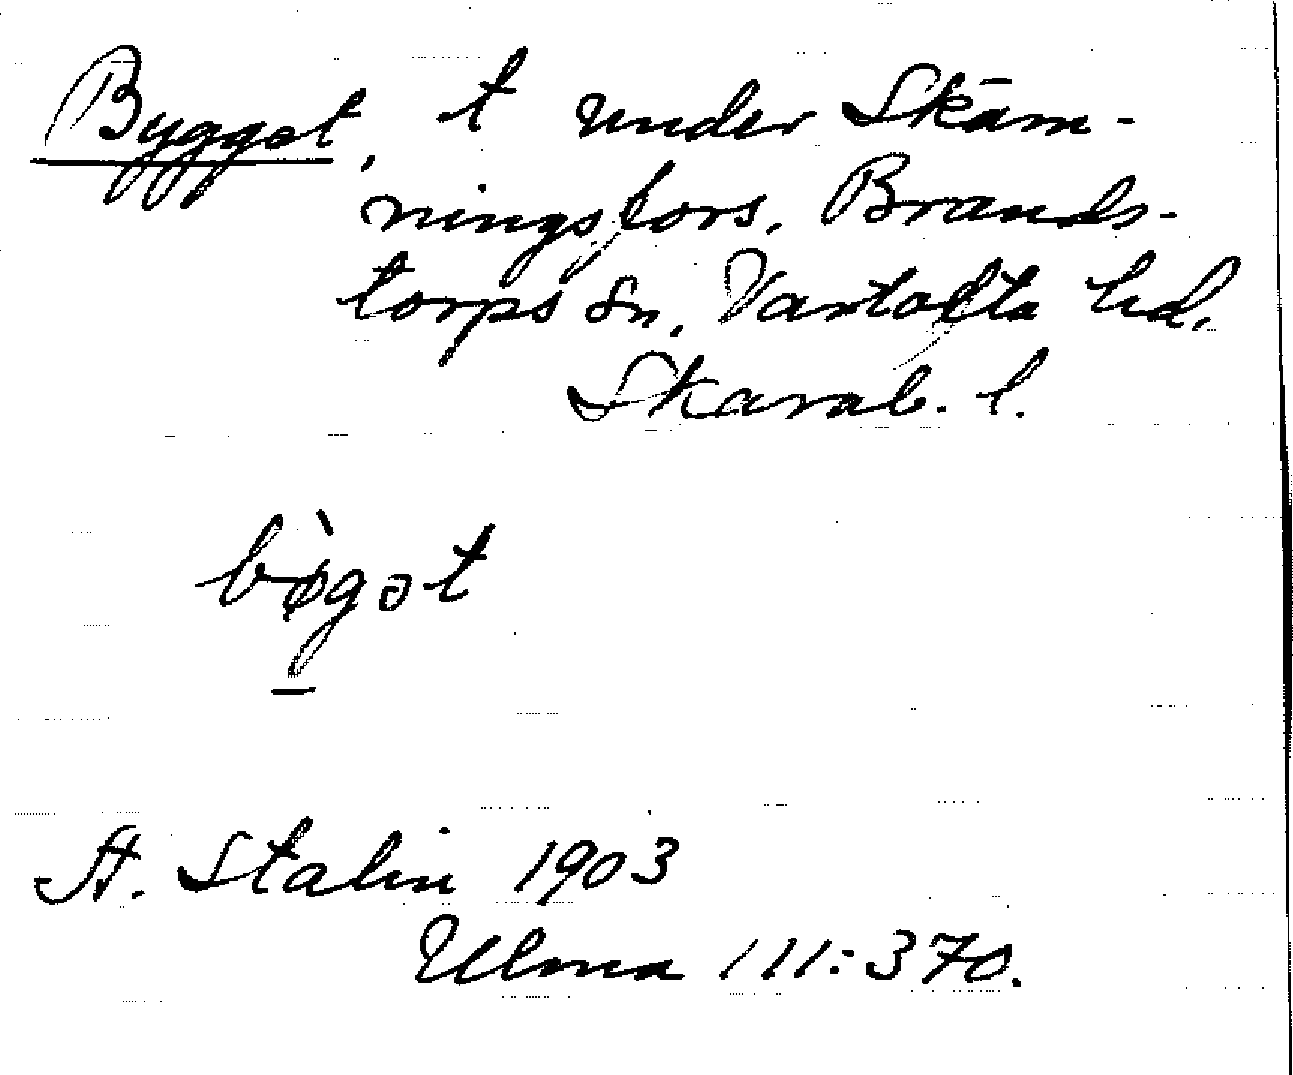 Bygget, t under Skäm-
ningsfors, Brands-
torps sn, Vartofta hd,
Skarab. l.
bø̀gət
A. Stalin 1903
Ulma 111:370.